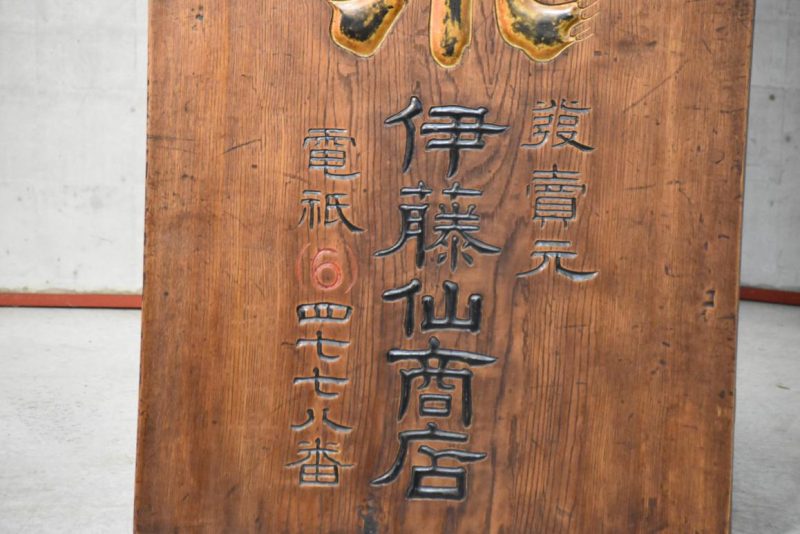 發賣元
伊藤仙商店
電祇(6)四七七八番